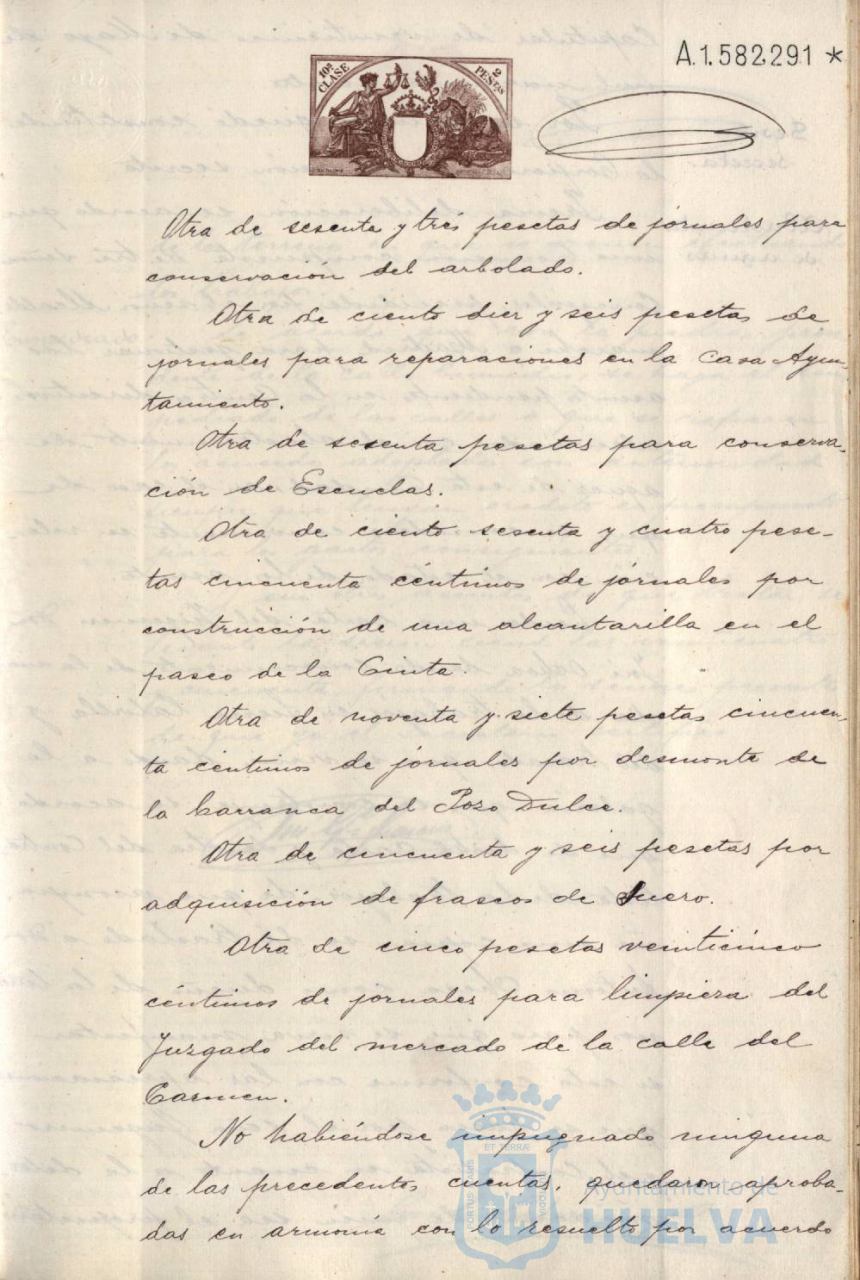 A.1.582.291 *
10ª CLASE
2 PESETAS
Otra de sesenta y tres pesetas de jornales para
conservación del arbolado.
Otra de ciento diez y seis pesetas de
jornales para reparaciones en la Casa Ayun-
tamiento.
Otra de sesenta pesetas para conserva-
ción de Escuelas.
Otra de ciento sesenta y cuatro pese-
tas cincuenta céntimos de jornales por
construcción de una alcantarilla en el
paseo de la Cinta.
Otra de noventa y siete pesetas cincuen-
ta céntimos de jornales por desmonte de
la barranca del Pozo Dulce.
Otra de cincuenta y seis pesetas por
adquisición de frascos de suero.
Otra de cinco pesetas veinticinco
céntimos de jornales para limpieza del
Juzgado del mercado de la calle del
Carmen.
No habiéndose impugnado ninguna
de las precedentes cuentas, quedaron aproba-
das en armonía con lo resuelto por acuerdo
Ayuntamiento de
HUELVA